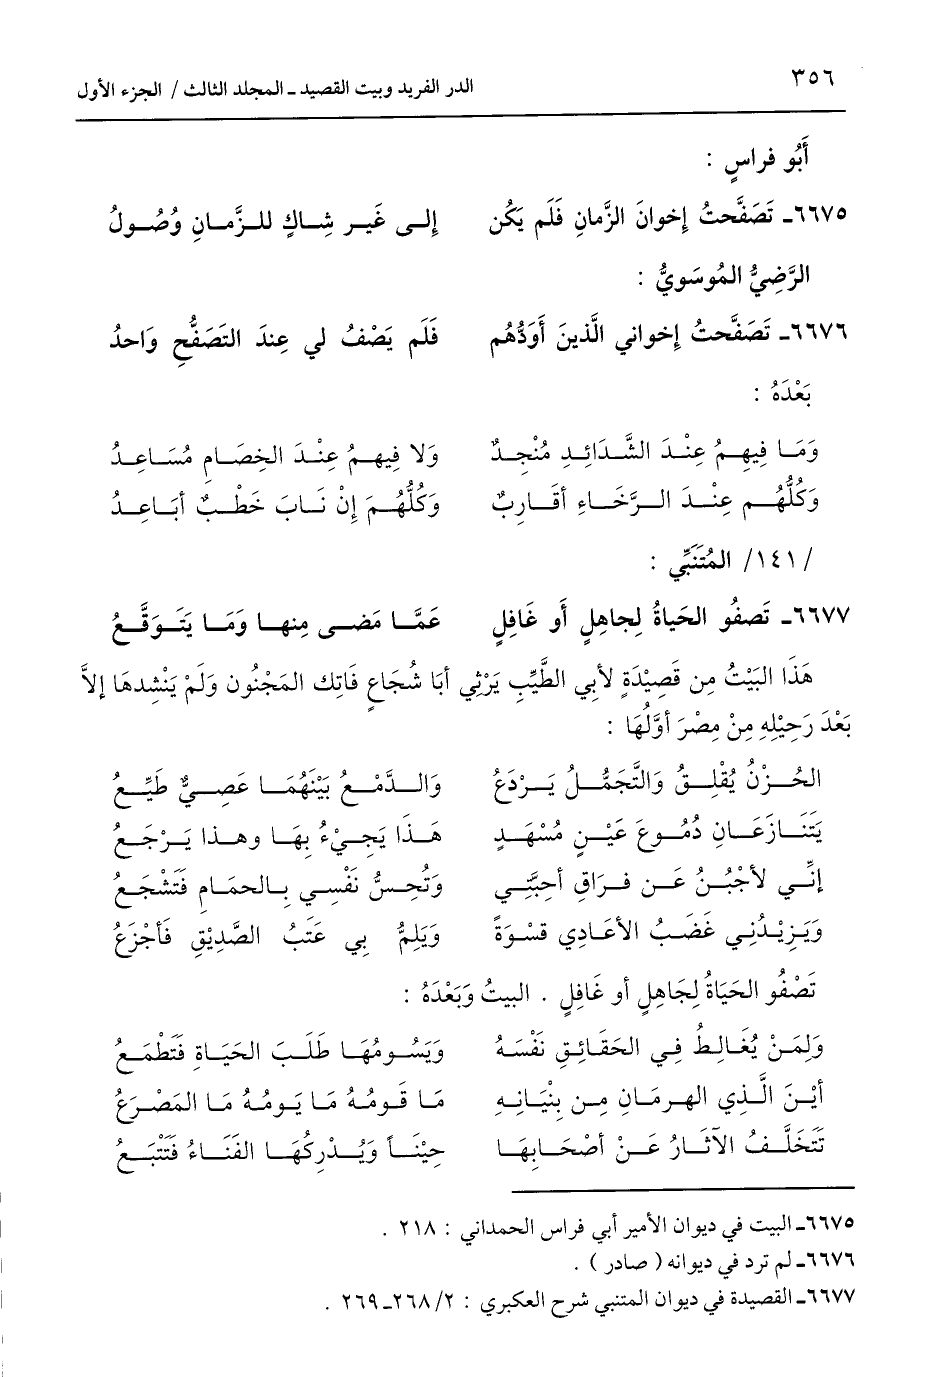 ٣٥٦ الدر الفريد وبيت القصيد ـ المجلد الثالث / الجزء الأول
أَبُو فراسٍ :
٦٦٧٥ـ تَصَفَّحتُ إخوانَ الزَّمانِ فَلَم يَكُن إلى غَير شِاكٍ للزَّمانِ وُصُولُ
الرَّضِيُّ المُوسَويُّ :
٦٦٧٦ـ تَصَفَّحتُ إخواني الَّذينَ أَوَدُّهُم فَلَم يَصْفُ لي عِندَ التَصَفُّحِ وَاحدُ
بَعْدَهُ :
وَمَا فِيهِمُ عِنْدَ الشَّدَائِدِ مُنْجِدٌ وَلا فِيهمُ عِنْدَ الخِصَامِ مُسَاعِدُ
وَكُلُّهُم عِنْدَ الرَّخَاءِ أقَارِبٌ وَكُلُّهُمَ إنْ نَابَ خَطْبٌ أبَاعِدُ
/١٤١/ المُتَنَبِّي :
٦٦٧٧ـ تَصفُو الحَياةُ لِجاهِلٍ أَو غَافِلٍ عَمَّا مَضى مِنها وَمَا يَتَوَقَّعُ
هَذَا البَيْتُ مِن قَصِيْدَةٍ لأبي الطَّيِّبِ يَرْثِي أبَا شُجَاعٍ فَاتِك المَجْنُون وَلَمْ يَنْشِدهَا إلاَّ
بَعْدَ رَحِيْلِهِ مِنْ مِصْرَ أوَّلُهَا :
الحُزْنُ يُقْلِقُ وَالتَّجَمُّلُ يَرْدَعُ وَالدَّمْعُ بَيْنَهُمَا عَصِيٌّ طَيِّعُ
يَتَنَازَعَانِ دُمُوعَ عَيْنِ مُسْهَدٍ هَذَا يَجِيْءُ بِهَا وهذا يَرْجَعُ
إنِّي لأجْبُنُ عَن فراقِ أحِبَّتِي وَتُحِسُّ نَفْسِي بِالحمَامِ فَتَشْجَعُ
وَيَزِيْدُنِي غَضَبُ الأعَادِي قسْوَةً وَيَلِمُّ بِي عَتَبُ الصَّدِيْقِ فَأجْزَعُ
تَصْفُو الحَيَاةُ لِجَاهِلٍ أو غَافِلٍ . البيتُ وَبَعْدَهُ :
وَلِمَنْ يُغَالِطُ فِي الحَقَائِقِ نَفْسَهُ وَيَسُومُهَا طَلَبَ الحَيَاةِ فَتَطْمَعُ
أيْنَ الَّذِي الهرمَانِ مِن بِنْيَانِهِ مَا قَومُهُ مَا يَومُهُ مَا المَصْرَعُ
تَتَخَلَّفُ الآثَارُ عَنْ أصْحَابِهَا حِيْنَاً وَيُدْرِكُهَا الفَنَاءُ فَتَتْبَعُ
٦٦٧٥ـ البيت في ديوان الأمير أبي فراس الحمداني : ٢١٨ .
٦٦٧٦ـ لم ترد في ديوانه ( صادر ) .
٦٦٧٧ـ القصيدة في ديوان المتنبي شرح العكبري : ٢/ ٢٦٨ـ ٢٦٩ .